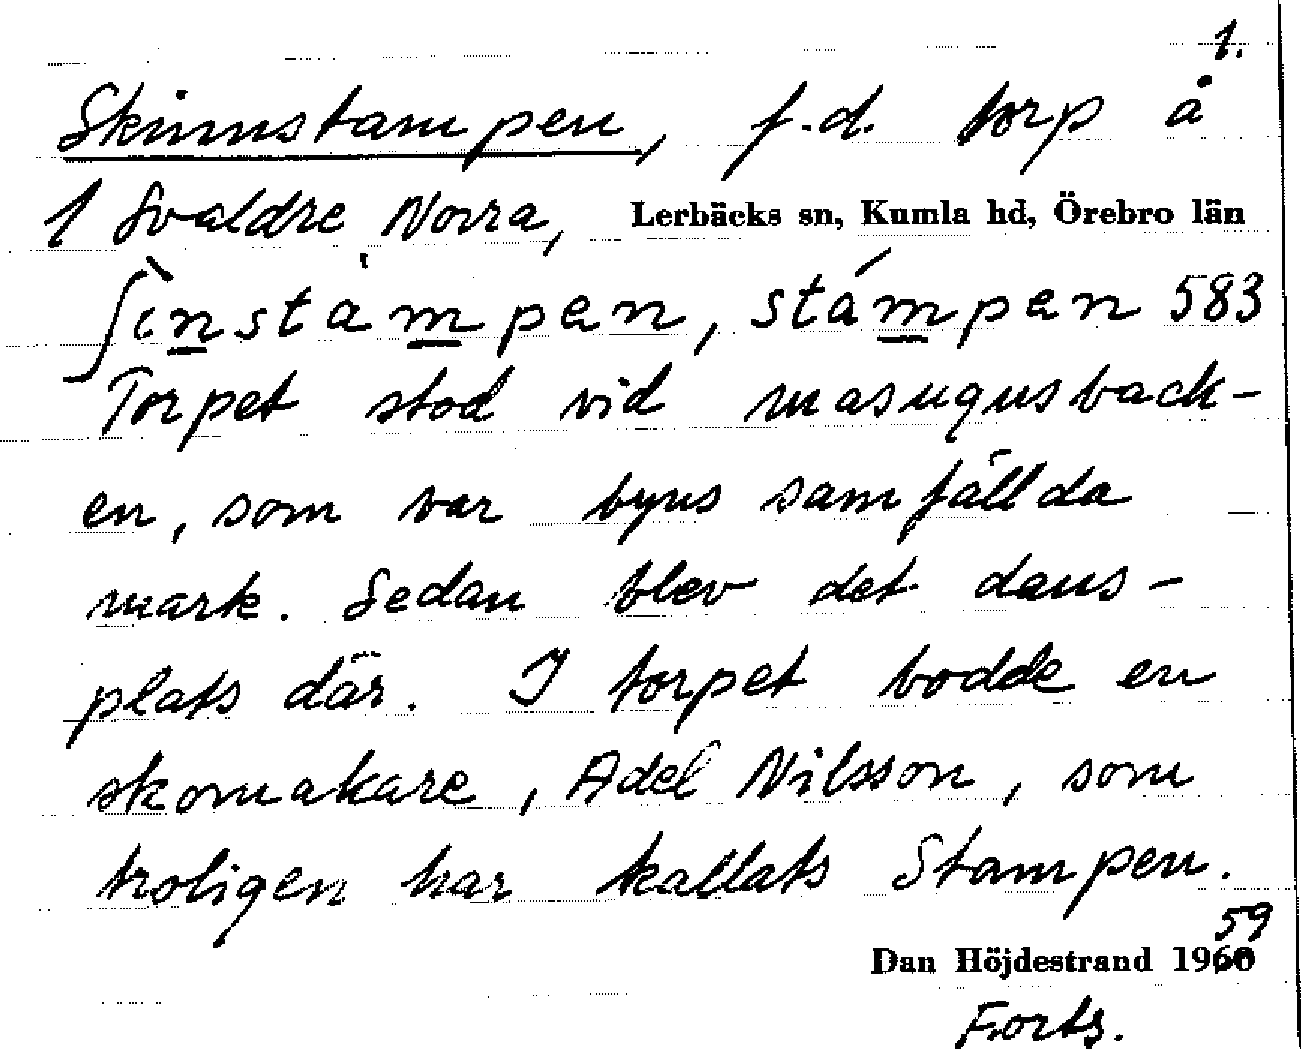 1.
Skinnstampen, f.d. torp å
1 Svaldre Norra, Lerbäcks sn, Kumla hd, Örebro län
ʃìnstàm̱pen, stám̱pen 583
Torpet stod vid masugnsback-
en, som var byns samfällda
mark. Sedan blev det dans-
plats där. I torpet bodde en
skomakare, Adel Nilsson, som
troligen har kallats Stampen.
59
Dan Höjdestrand 1960
Forts.